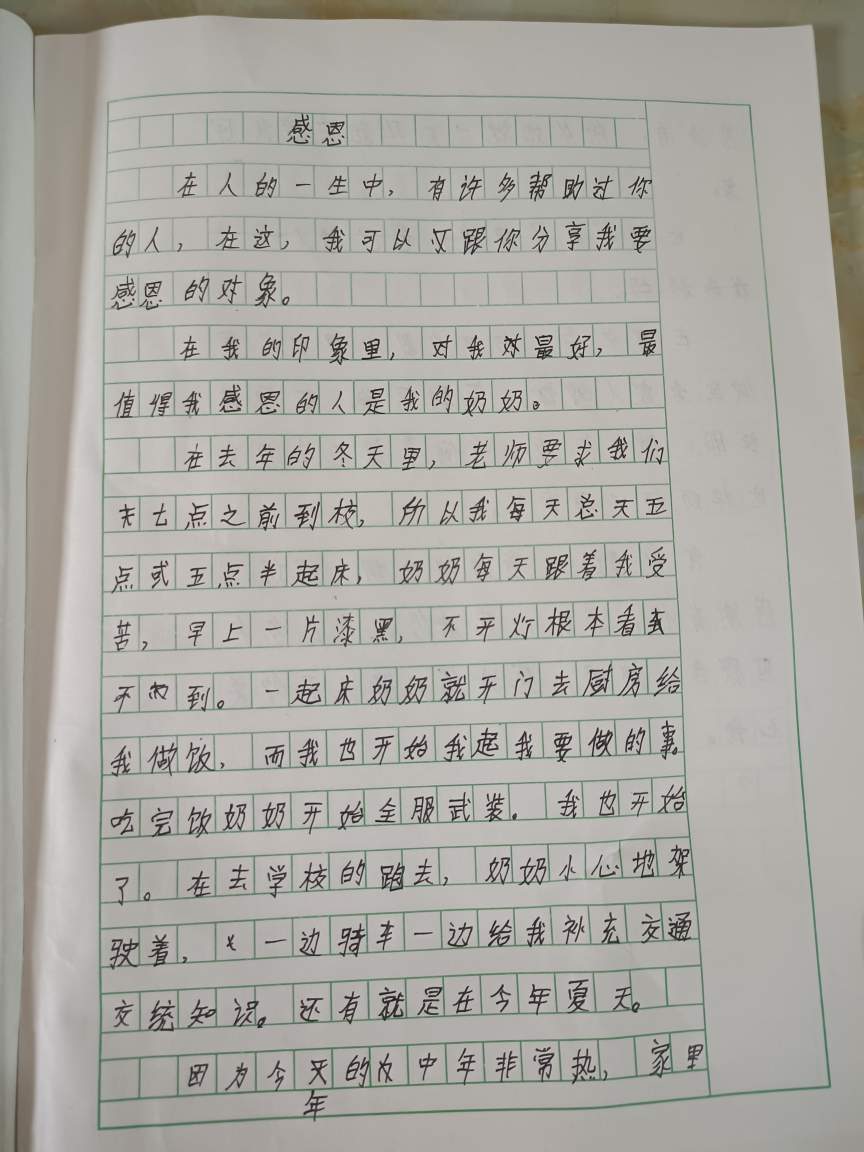 感恩
在人的一生中，有许多帮助过你
的人，在这，我可以又跟你分享我要
感恩的对象。
在我的印象里，对我对最好，最
值得我感恩的人是我的奶奶。
在去年的冬天里，老师要求我们
七点之前到校，所以我每天总天五
点或五点半起床，奶奶每天跟着我受
苦，早上一片漆黑，不开灯根本看
不到。一起床奶奶就开门去厨房给
我做饭，而我也开始我起我要做的事。
吃完饭奶奶开始全服武装。我也开始
了。在去学校的跑去，奶奶小心地架
驶着，一边骑车一边给我补充交通
交统知识。还有就是在今年夏天。
因为今天的中年非常热，家里
年